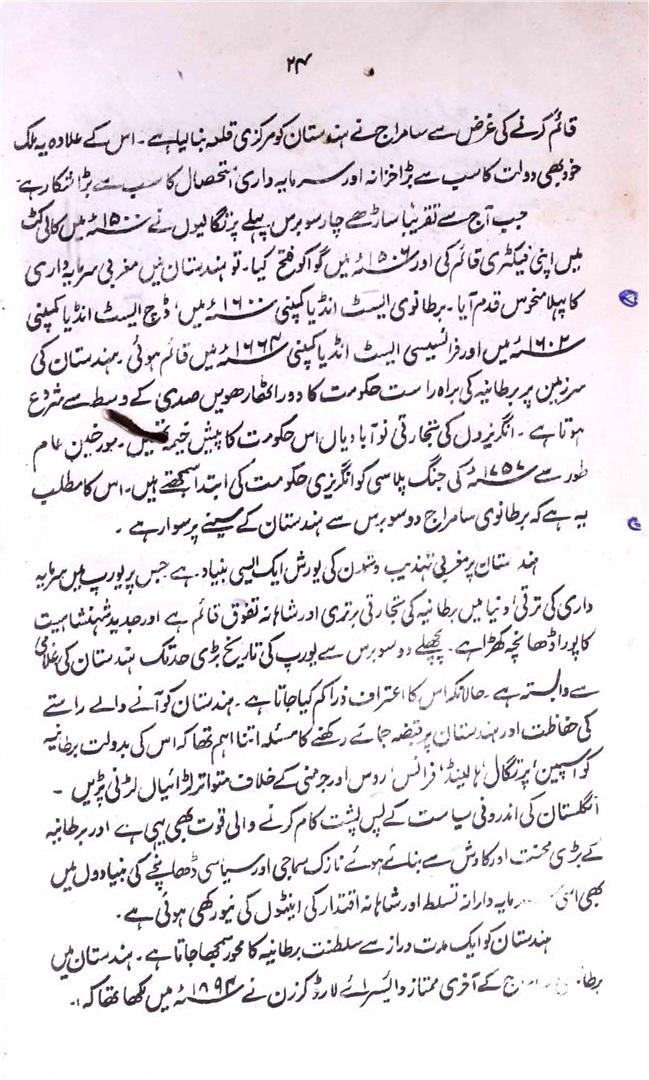 ۲۴
قائم کرنے کی غرض سے سامراج نے ہندستان کو مرکزی قلعہ بنا لیا ہے۔ اس کے علاوہ یہ ملک
خود بھی دولت کا سب سے بڑا خزانہ اور سرمایہ داری استحصال کا سب سے بڑا شکار ہے
جب آج سے تقریباً ساڑھے چار سو برس پہلے پرتگالیوں نے ۱۵۰۰ء میں کالی کٹ
میں اپنی فیکٹری قائم کی اور ۱۵۰۶ء میں گوا کو فتح کیا۔ تو ہندستان میں مغربی سرمایہ داری
کا پہلا منحوس قدم آیا۔ برطانوی ایسٹ انڈیا کمپنی ۱۶۰۰ء میں، ڈچ ایسٹ انڈیا کمپنی
۱۶۰۲ء میں اور فرانسیسی ایسٹ انڈیا کمپنی ۱۶۶۴ء میں قائم ہوئی۔ ہندستان کی
سرزمین پر برطانیہ کی براہ راست حکومت کا دور اٹھارھویں صدی کے وسط سے شروع
ہوتا ہے۔ انگریزوں کی تجارتی نو آبادیاں اس حکومت کا پیش خیمہ تھیں۔ مورخین عام
طور سے ۱۷۵۷ء کی جنگ پلاسی کو انگریزی حکومت کی ابتدا سمجھتے ہیں۔ اس کا مطلب
یہ ہے کہ برطانوی سامراج دو سو برس سے ہندستان کے سینے پر سوار ہے۔
ہندستان پر مغربی تہذیب و تمدن کی یورش ایک ایسی بنیاد ہے جس پر یورپ میں سرمایہ
داری کی ترقی، دنیا میں برطانیہ کی تجارتی برتری اور شاہانہ تفوق قائم ہے اور جدید شہنشاہیت
کا پورا ڈھانچہ کھڑا ہے۔ پچھلے دو سو برس سے یورپ کی تاریخ بڑی حد تک ہندستان کی غلامی
سے وابستہ ہے۔ حالانکہ اس کا اعتراف ذرا کم کیا جاتا ہے۔ ہندستان کو آنے والے راستے
کی حفاظت اور ہندستان پر قبضہ جمائے رکھنے کا مسئلہ اتنا اہم تھا کہ اس کی بدولت برطانیہ
کو اسپین، پرتگال، ہالینڈ، فرانس، روس اور جرمنی کے خلاف متواتر لڑائیاں لڑنی پڑیں۔
انگلستان کی اندرونی سیاست کے پس پشت کام کرنے والی قوت بھی یہی ہے اور برطانیہ
کے بڑی محنت اور کاوش سے بنائے ہوئے نازک سماجی اور سیاسی ڈھانچے کی بنیادوں میں
بھی اسی مایہ دارانہ تسلط اور شاہانہ اقتدار کی اینٹوں کی نیو رکھی ہوئی ہے۔
ہندستان کو ایک مدت دراز سے سلطنت برطانیہ کا محور سمجھا جاتا ہے۔ ہندستان میں
کے آخری ممتاز وائسرائے لارڈ کرزن نے ۱۸۹۴ء میں لکھا تھا کہ:۔